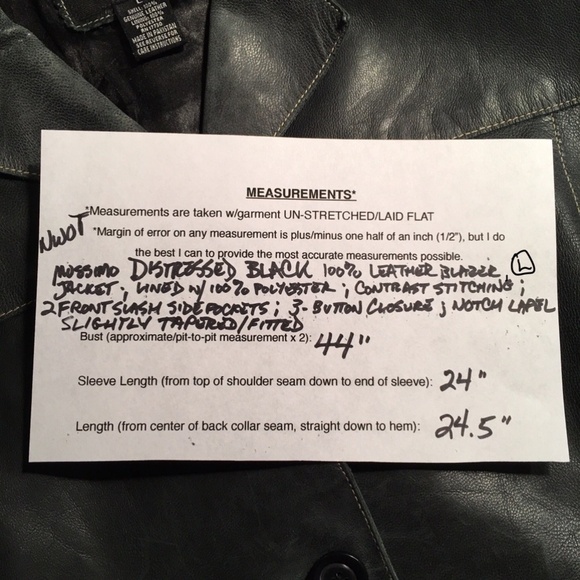 L
SHELL: 100%
GENUINE LEATHER
LINING: 100%
POLYESTER
MADE IN PAKISTAN
SEE REVERSE FOR
CARE INSTRUCTIONS
MEASUREMENTS*
NWOT
*Measurements are taken w/garment UN-STRETCHED/LAID FLAT
*Margin of error on any measurement is plus/minus one half of an inch (1/2"), but I do
the best I can to provide the most accurate measurements possible.
MOSSIMO DISTRESSED BLACK 100% LEATHER BLAZER, L
JACKET; LINED W/100% POLYESTER; CONTRAST STITCHING;
2 FRONT SLASH SIDE POCKETS; 3-BUTTON CLOSURE; NOTCH LAPEL
SLIGHTLY TAPERED/FITTED
Bust (approximate/pit-to-pit measurement x 2): 44"
Sleeve Length (from top of shoulder seam down to end of sleeve): 24"
Length (from center of back collar seam, straight down to hem): 24.5"